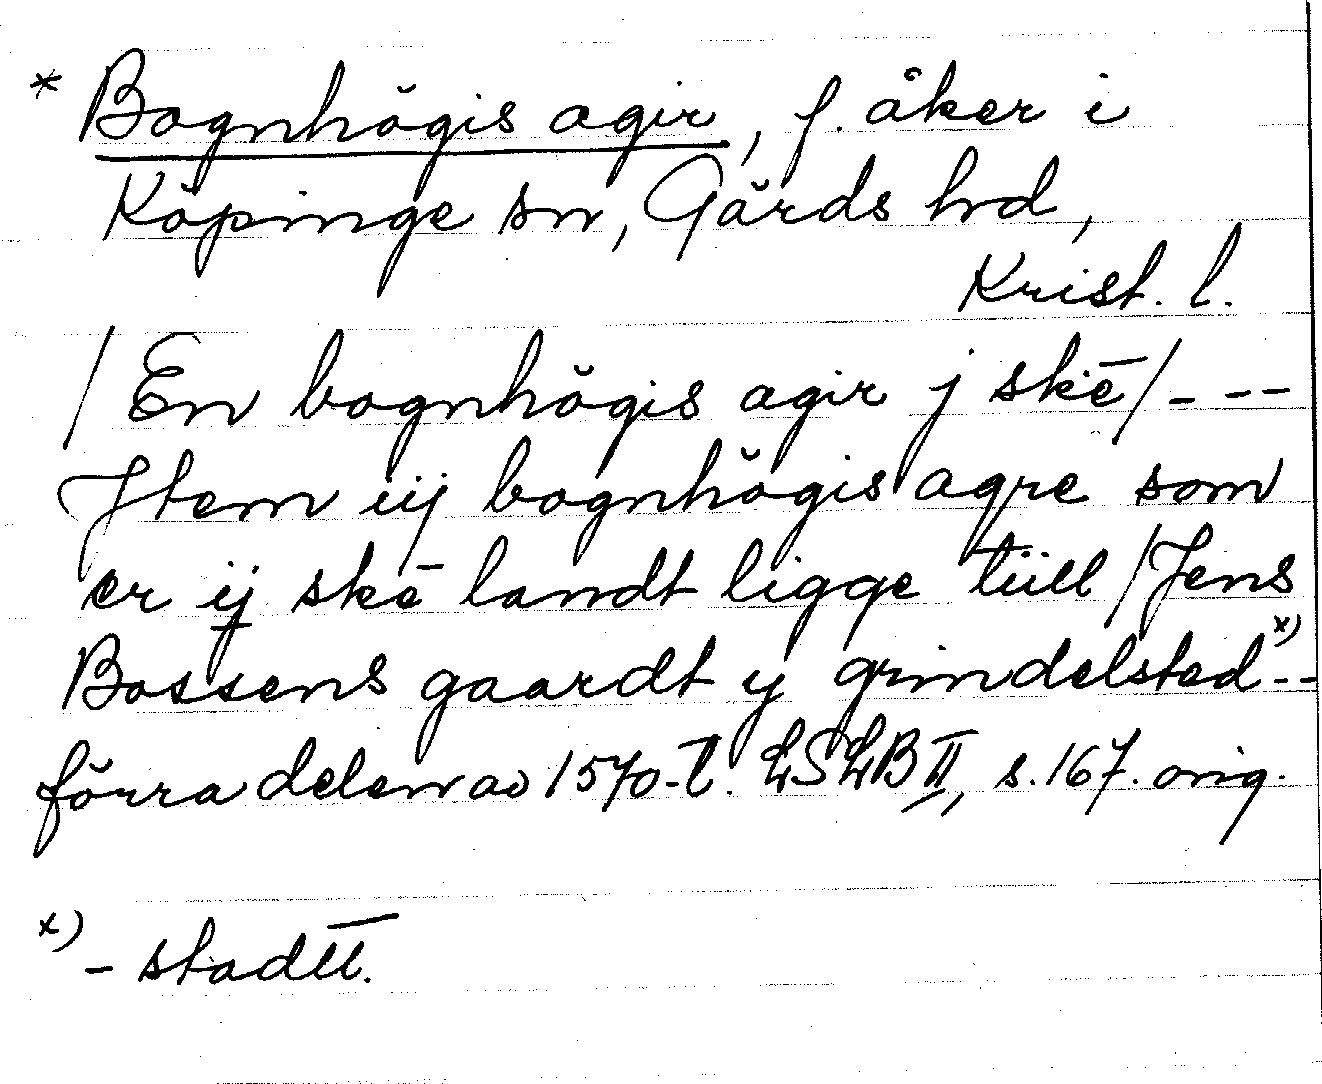 * Bognhögis agir, f. åker i
Köpinge sn, Gärds hd,
Krist. l.
/ En bognhögis agir j skē / - - -
Jtem iij bognhögis agre som
er ij skē landt ligge tüll / Jens
Bossens gaardt y grindelsted x) - -
förra delen av 1570-t. LSLB II, s. 167. orig.
x) - stadtt.